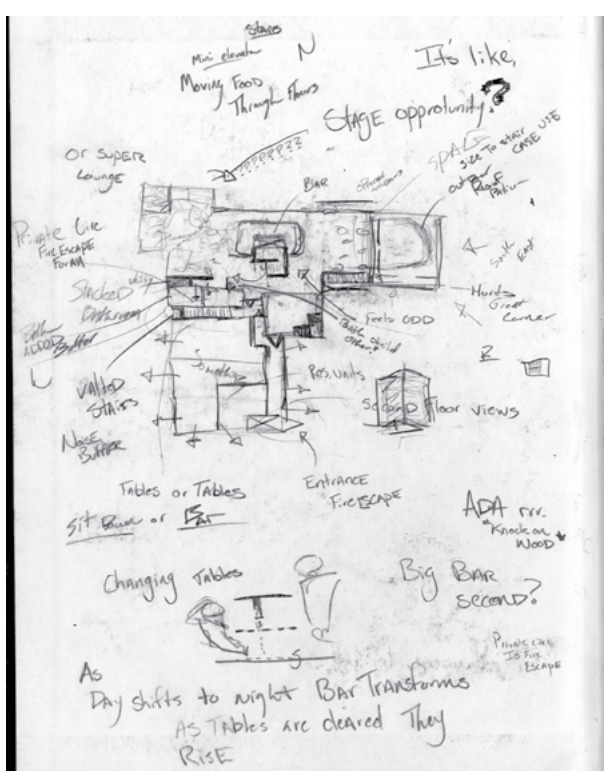 Stairs
Mini elevator
N
Moving Food
Through Floors
It's like,
Stage opprotunity?
???????
Or super
Lounge
Bar
SPACE
size to stair
case use
out Bar
Roof
Patium
South
East
Private Live
Fire Escape
Stacked
Bathroom
Buffer
Feels ODD
Hurts
Great
Corner
Valted
Stairs
Something
Res. Units
R
Second Floor views
Noise
Buffer
R
Entrance
Fire Escape
Tables or Tables
Sit Down or Bar
ADA rrr.
*Knock on
Wood*
Changing Tables
Big Bar
second?
Private
Is Fire
Escape
As
Day shifts to night Bar Transforms
As Tables are cleared They
Rise